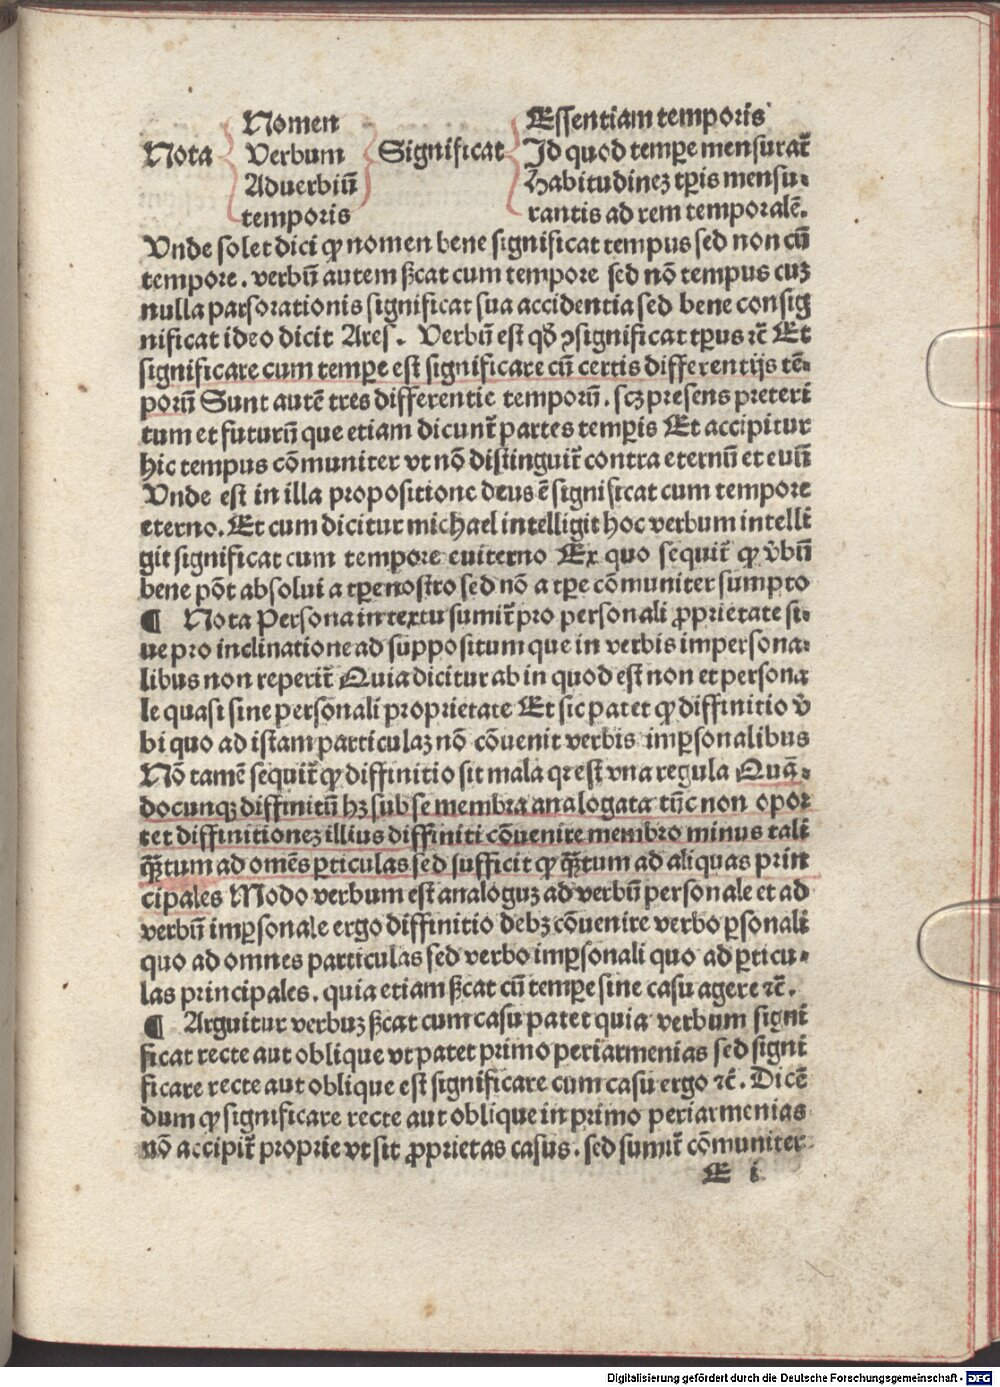 Nomen
Nota Verbum Significat
Aduerbiū
temporis
Essentiam temporis
Id quod tempꝑe mensurat᷑
Habitudineꝫ tꝑis mensu⸗
rantis ad rem temporalē.
Vnde solet dici ꝙ nomen bene significat tempus sed non cū
tempore. verbū autem ßcat cum tempore sed nō tempus cuꝫ
nulla pars orationis significat sua accidentia sed bene consig
nificat ideo dicit Ares. Verbū est qđ ꝯsignificat tꝑus ⁊c̄ Et
significare cum tempꝑe est significare cū certis differentijs tē⸗
porū Sunt autē tres differentie temporū. scꝫ presens preteri
tum et futurū que etiam dicunt᷑ partes tempꝑis Et accipitur
hic tempus cōmuniter vt nō distinguit᷑ contra eternū et euū
Vnde est in illa propositione deus ē significat cum tempore
eterno. Et cum dicitur michael intelligit hoc verbum intelli
git significat cum tempore euiterno Ex quo sequit᷑ ꝙ v̄bū
bene pōt absolui a tꝑe nostro sed nō a tꝑe cōmuniter sumpto
¶ Nota Persona in textu sumit᷑ pro personali ꝓprietate si⸗
ue pro inclinatione ad suppositum que in verbis impersona⸗
libus non reperit᷑ Quia dicitur ab in quod est non et persona
le quasi sine personali proprietate Et sic patet ꝙ diffinitio v̄
bi quo ad istam particulaꝫ nō cōuenit verbis impꝑsonalibus
Nō tamē sequit᷑ ꝙ diffinitio sit mala qꝛ est vna regula Quā⸗
docunqꝫ diffinitū hꝫ sub se membra analogata tūc non opor
tet diffinitioneꝫ illius diffiniti cōuenire membro minus tali
q̄ꝫtum ad omēs ꝑticulas sed sufficit ꝙ q̄ꝫtum ad aliquas prin
cipales Modo verbum est analoguꝫ ad verbū personale et ad
verbū impꝑsonale ergo diffinitio debꝫ cōuenire verbo ꝑsonali
quo ad omnes particulas sed verbo impꝑsonali quo ad ꝑticu⸗
las principales. quia etiam ßcat cū tempꝑe sine casu agere ⁊c̄.
¶ Arguitur verbuꝫ ßcat cum casu patet quia verbum signi
ficat recte aut oblique vt patet primo periarmenias sed signi
ficare recte aut oblique est significare cum casu ergo ⁊c̄. Dicē
dum ꝙ significare recte aut oblique in primo periarmenias
nō accipit᷑ proprie vt sit ꝓprietas casus. sed sumit᷑ cōmuniter
E i
Digitalisierung gefördert durch die Deutsche Forschungsgemeinschaft - DFG